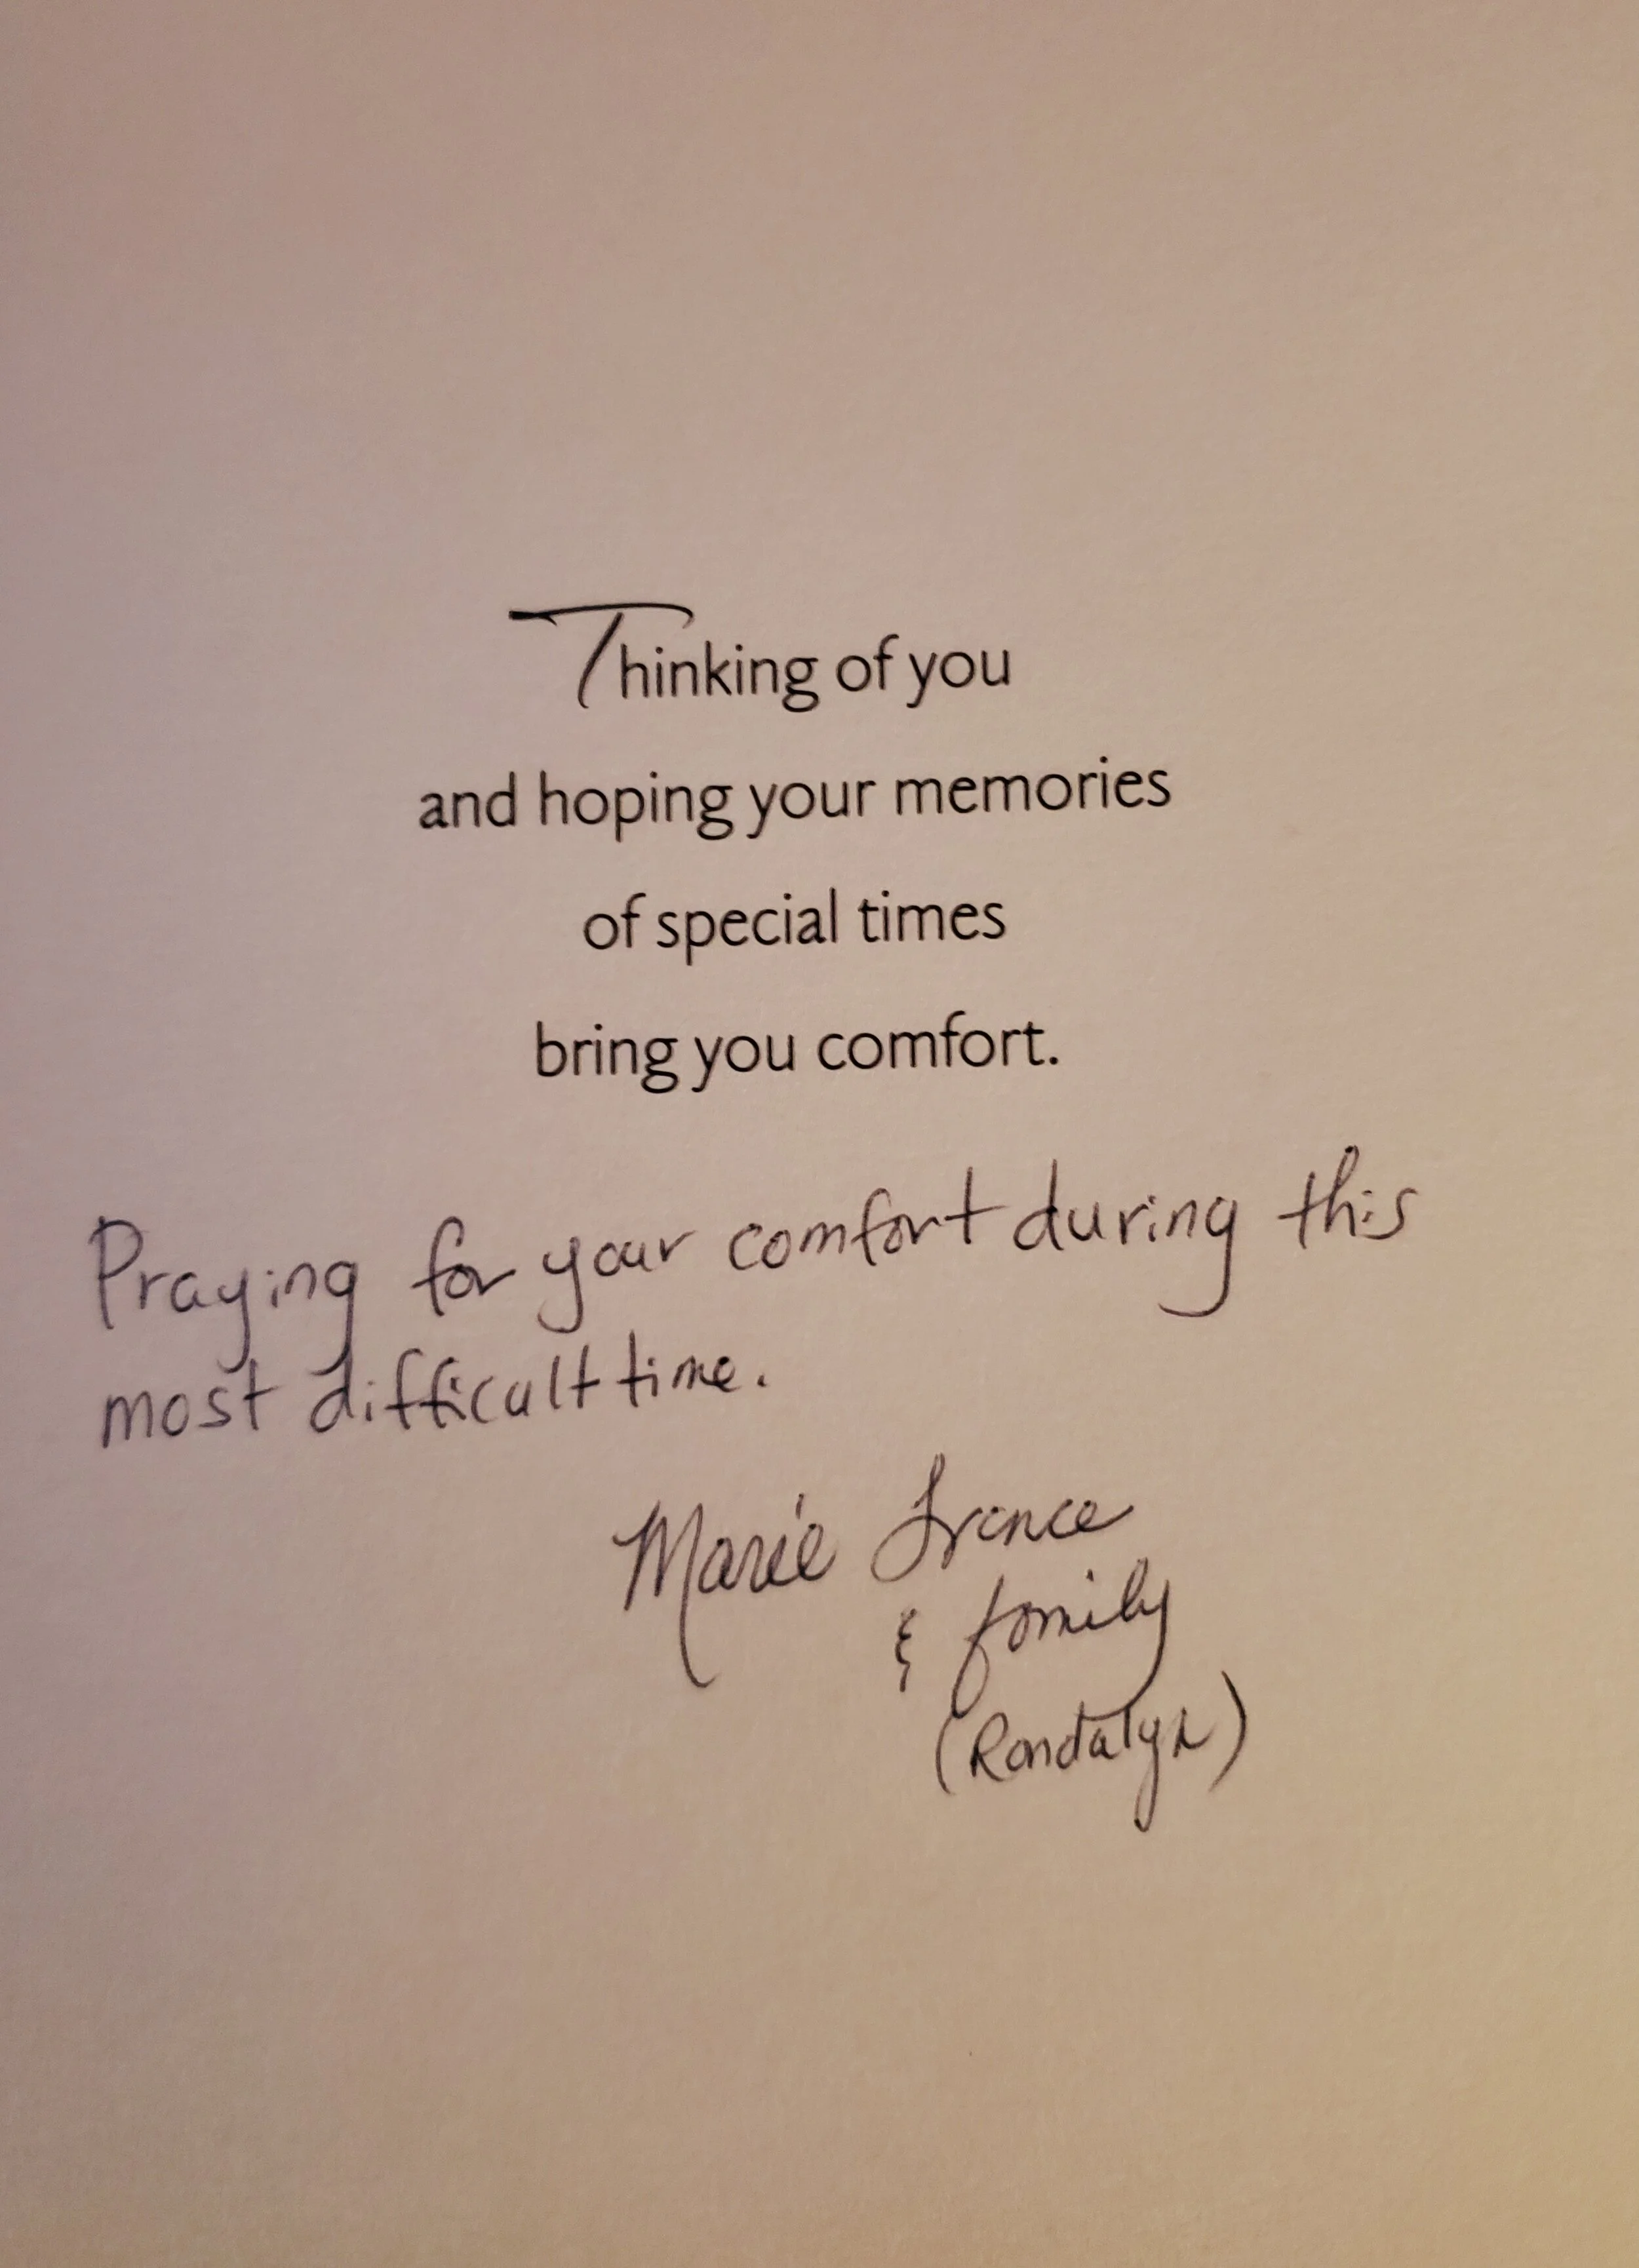 Thinking of you
and hoping your memories
of special times
bring you comfort.
Praying for your comfort during this
most difficult time.
Marie France
& family
(Rondalyn)